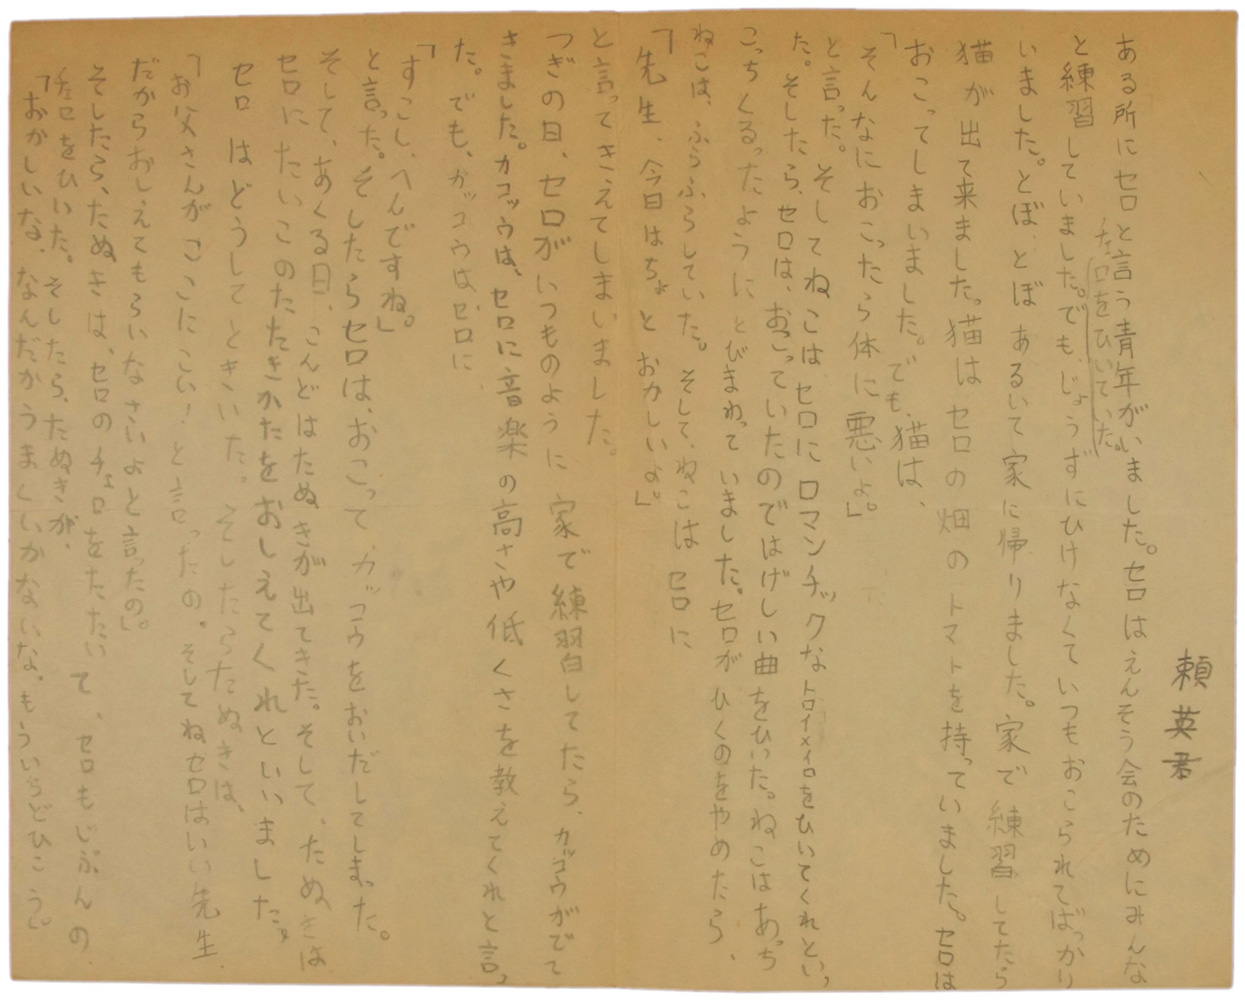 頼英君
ある所にセロと言う青年がいました。セロはえんそう会のためにみんな
と練習していました。でも、じょうずにひけなくていつもおこられてばっかり
セロをひいていた。
いました。とぼ、とぼあるいて家に帰りました。家で練習してたら
猫が出て来ました。猫はセロの畑のトマトを持っていました。セロは
おこってしまいました。でも、猫は、
「そんなにおこったら体に悪いよ。」
と言った。そしてねこはセロにロマンチックなトロイメイロをひいてくれとい
た。そしたら、セロは、おこっていたのではげしい曲をひいた。ねこはあっち
こっちくるったようにとびまわっていました。セロがひくのをやめたら、
ねこは、ふらふらしていた。そして、ねこはセロに
「先生、今日はちょとおかしいよ。」
と言ってきえてしまいました。
つぎの日、セロがいつものように家で練習してたら、カッコウがでて
きました。カコッウは、セロに音楽の高さや低くさを教えてくれと言っ
た。でも、カッコウは、セロに、
「すこし、へんですね。」
と言った。そしたらセロは、おこって、カッコウをおいだしてしまった。
そして、あくる日、こんどはたぬきが出てきた。そして、たぬきは
セロにたいこのたたきかたをおしえてくれといいました。
セロはどうしてときいた。そしたらたぬきは、
「お父さんがここにこい!と言ったの。そしてね、セロはいい先生
だからおしえてもらいなさいよと言ったの。」
そしたら、たぬきは、セロのチェロをたたいて、セロもじぶんの
チェロをひいた。そしたら、たぬきが、
「おかしいな、なんだかうまくいかないな、もういちどひこう。」